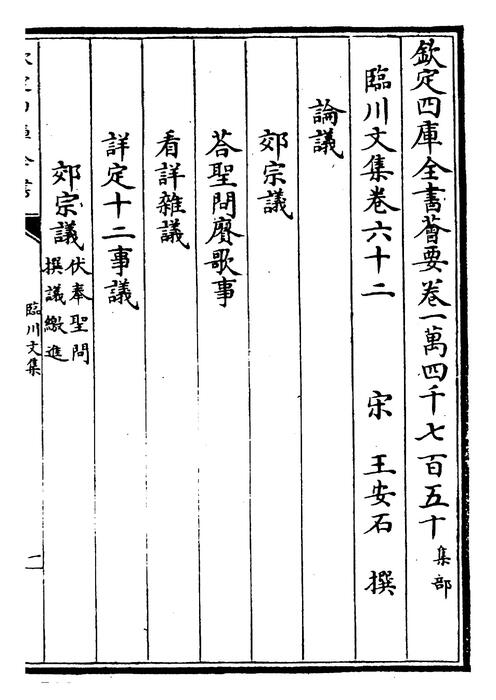 欽定四庫全書薈要卷一萬四千七百五十集部
臨川文集卷六十二 宋 王安石 撰
論議
郊宗議
荅聖問賡歌事
看詳雜議
詳定十二事議
郊宗議伏奉聖問撰議繳進
臨川文集